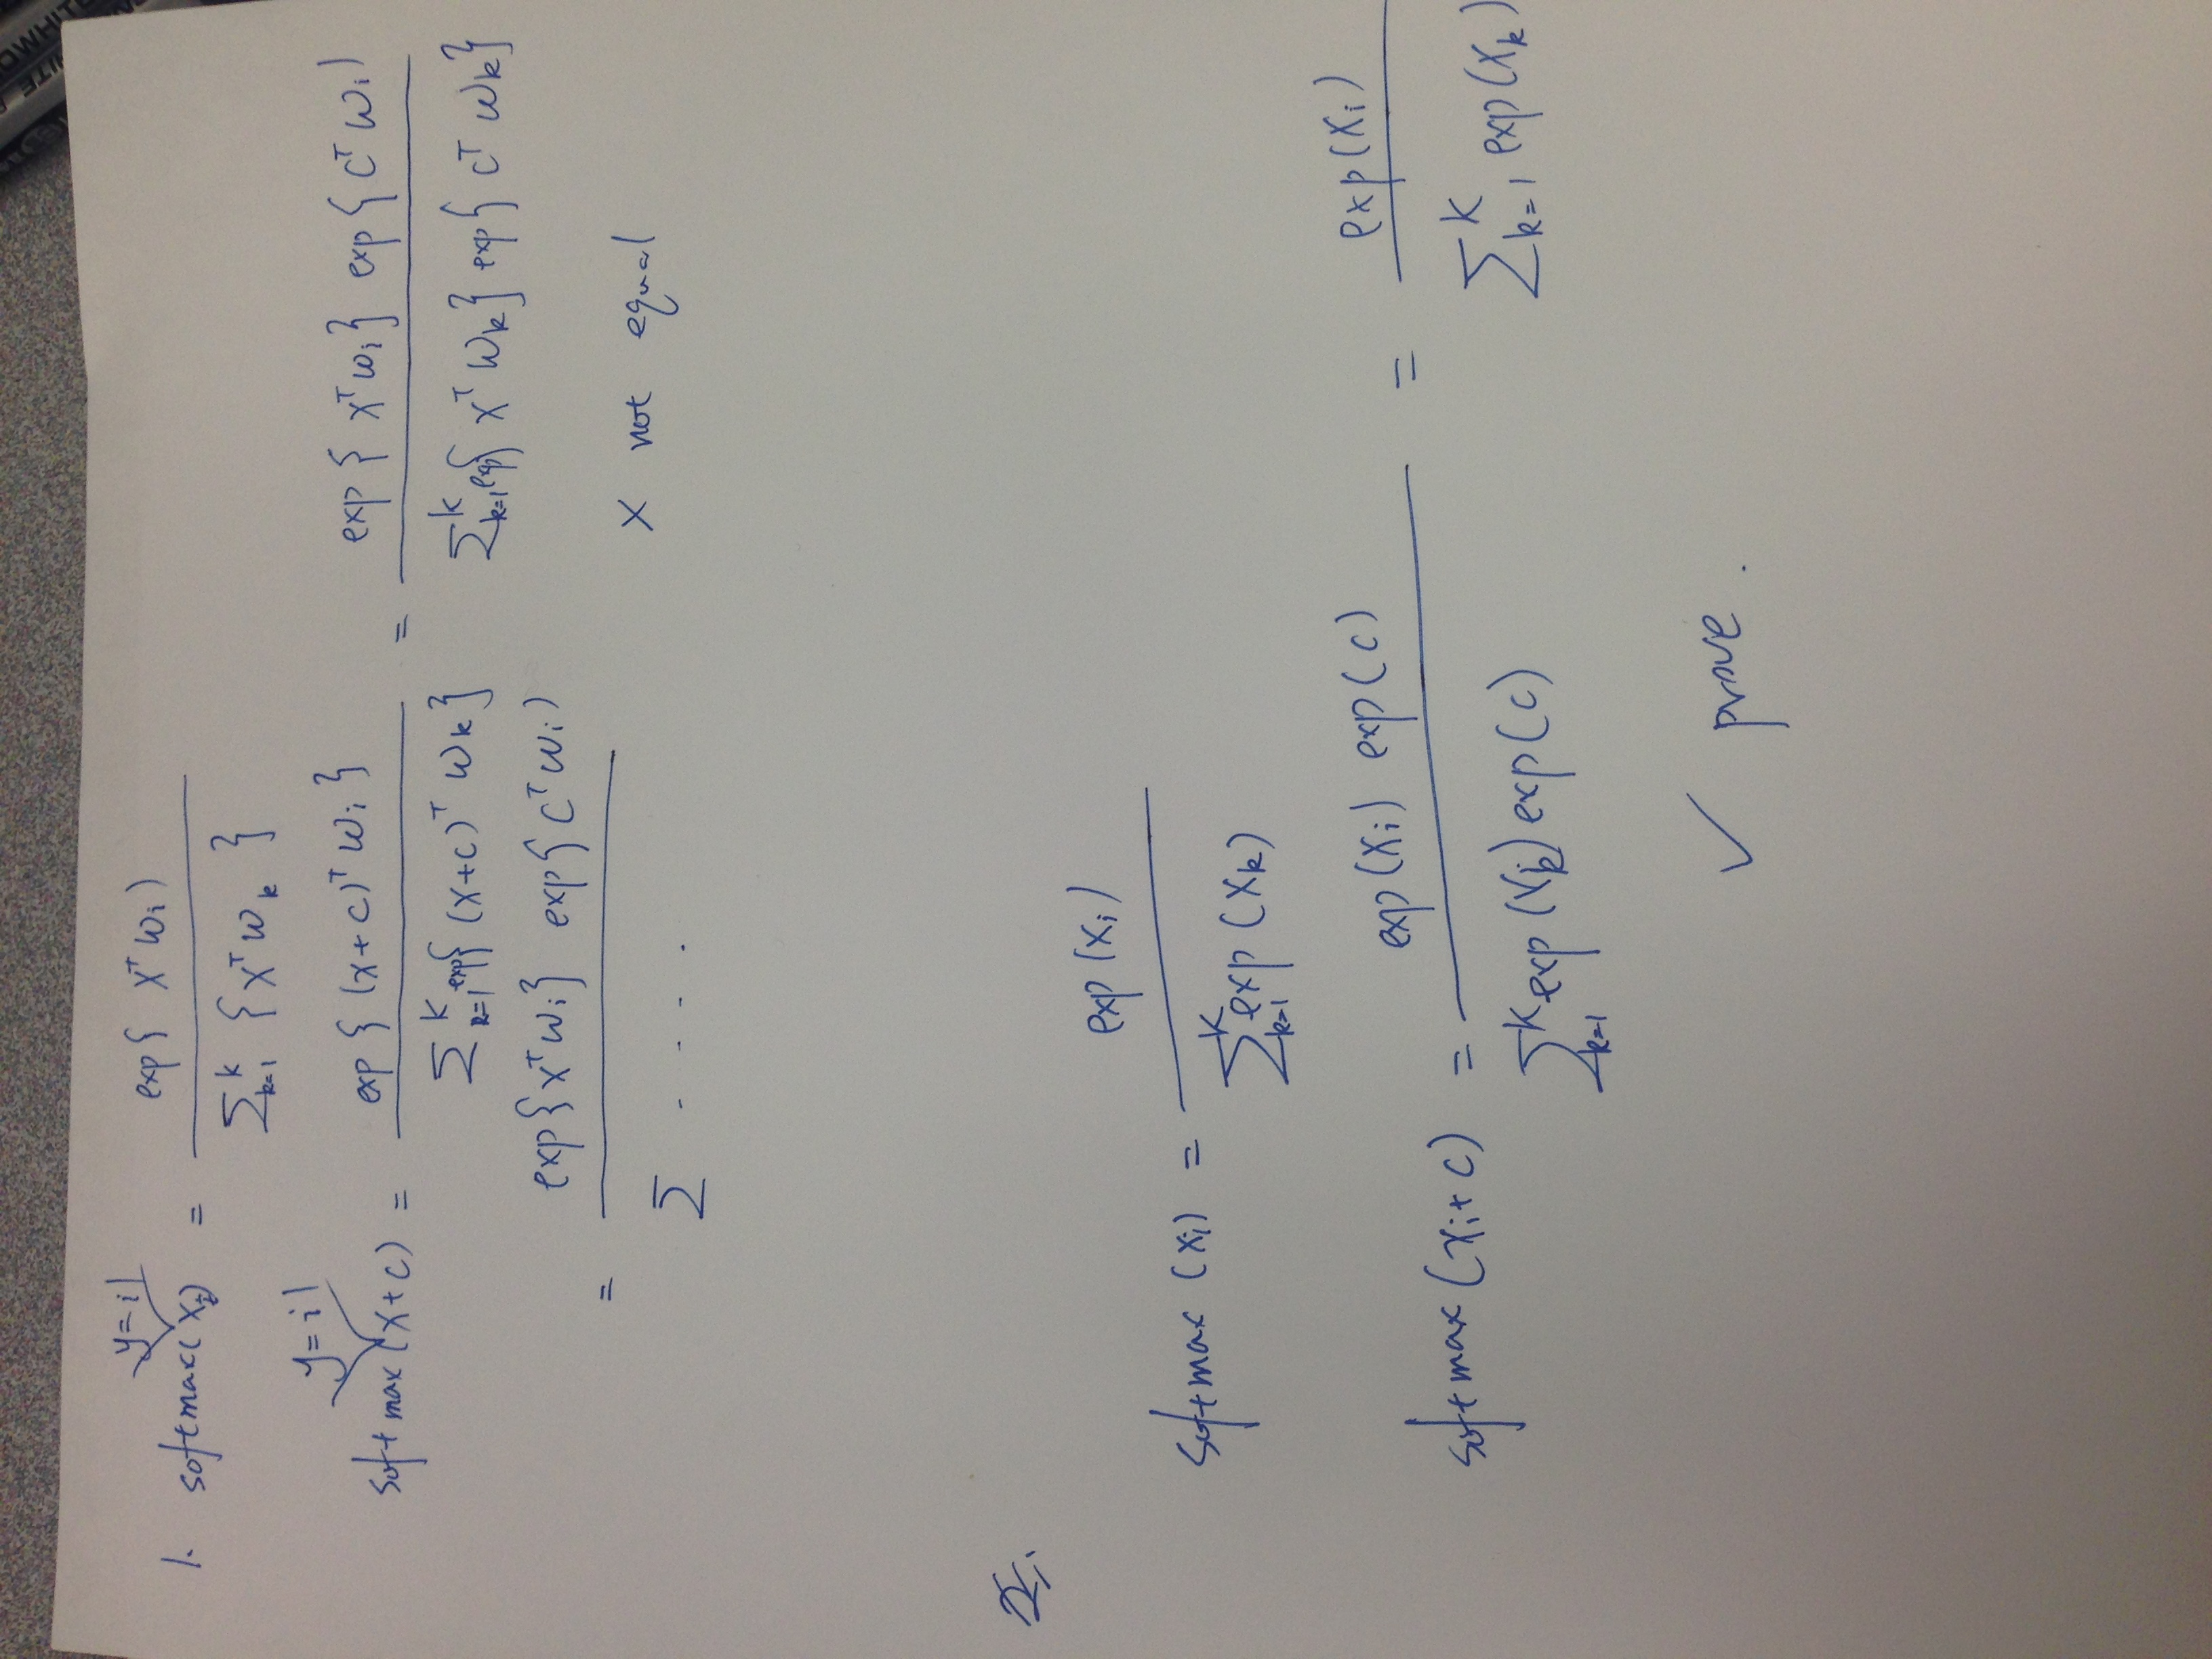 1. softmax( y=i| x_i) = exp{ x^T w_i) / Σ_{k=1}^K { x^T w_k }
softmax( y=i| x+c) = exp{ (x+c)^T w_i } / Σ_{k=1}^K exp{ (x+c)^T w_k } = exp{ x^T w_i} exp{ c^T w_i) / Σ_{k=1}^K exp{ x^T w_k} exp{ c^T w_k}
= exp{x^T w_i} exp{ c^T w_i) / Σ - - - - .
X not equal
2.
softmax (x_i) = exp(x_i) / Σ_{k=1}^K exp (x_k)
softmax (x_i+c) = exp(x_i) exp(c) / Σ_{k=1}^K exp (x_k) exp(c) = exp(x_i) / Σ_{k=1}^K exp(x_k)
✓ prove .